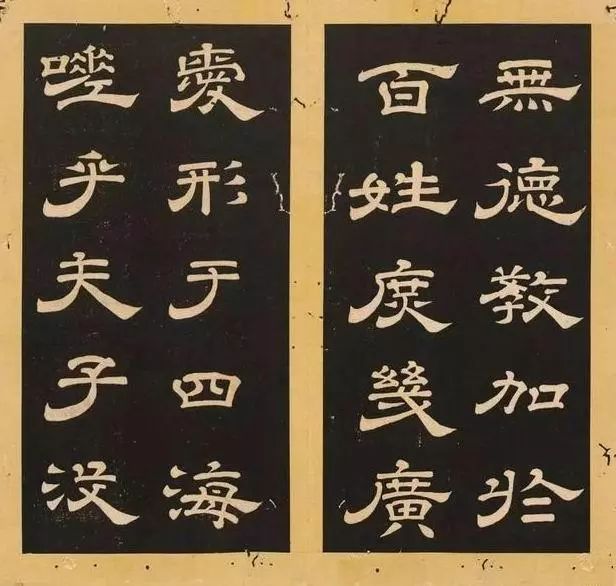 無德教加於
百姓庶幾廣
愛形于四海
嗟乎夫子沒